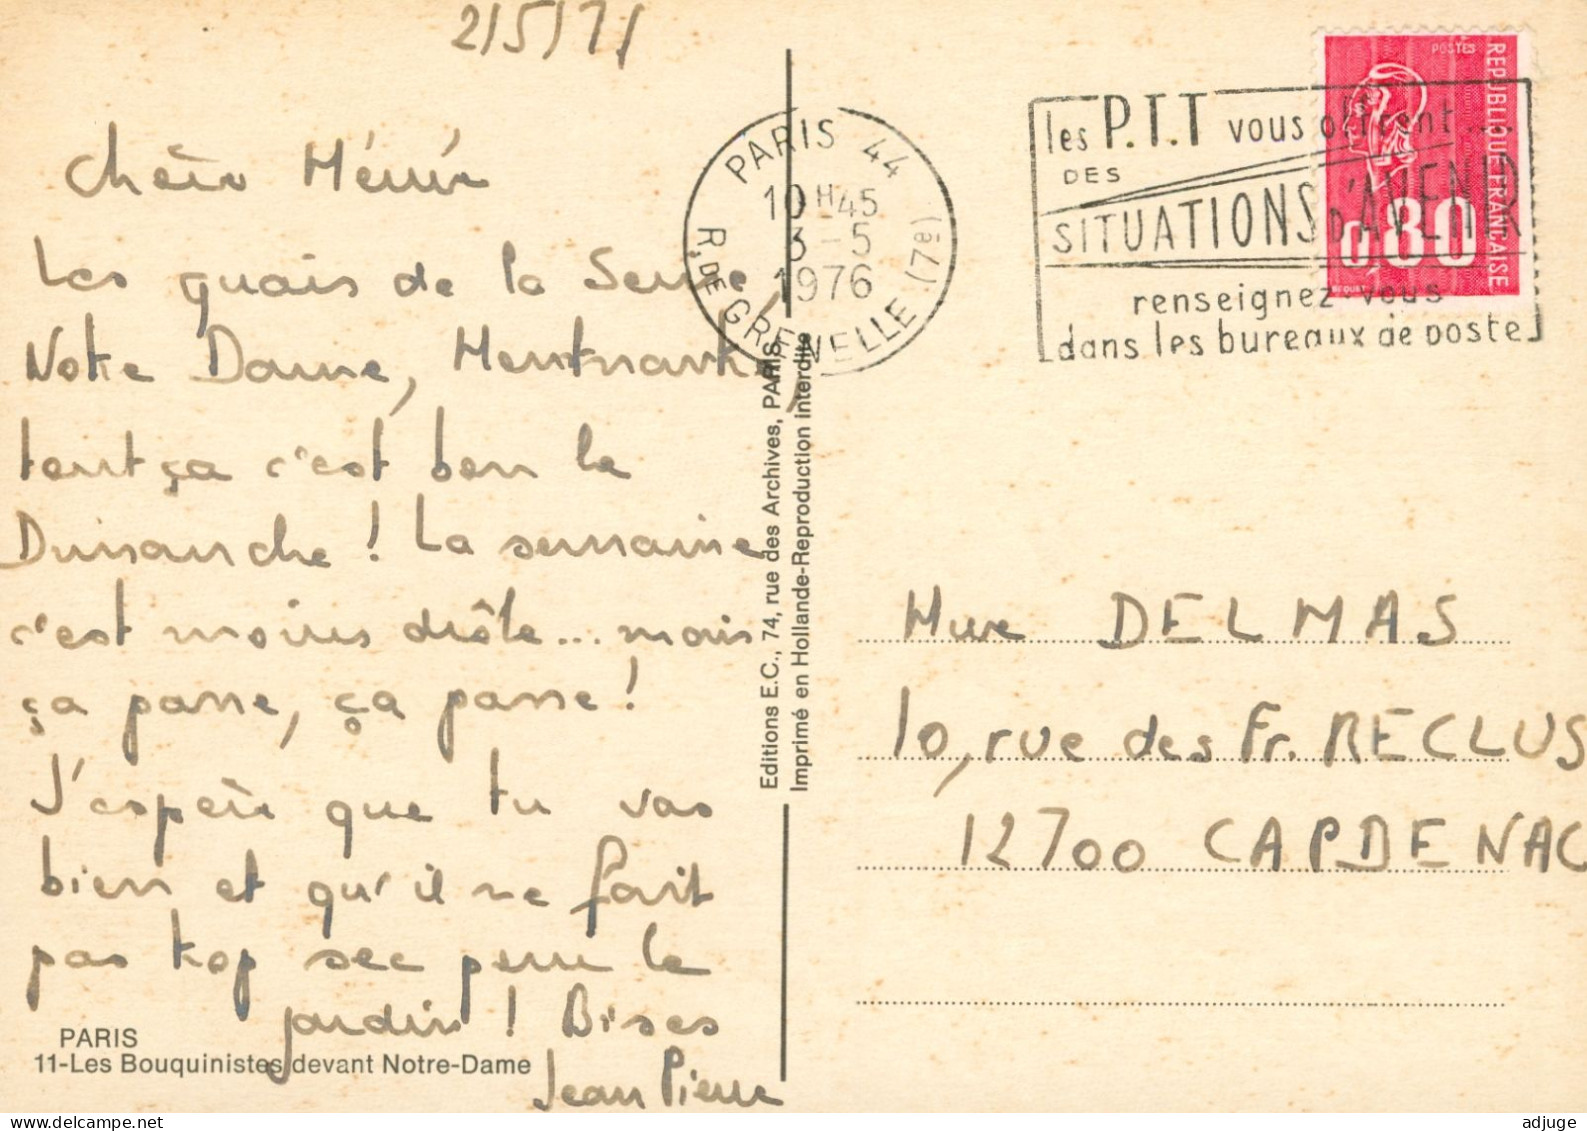 2/5/71
Chère Mémé
Les quais de la Seine,
Notre Dame, Montmartre,
tout ça c'est bon le
Dimanche ! La semaine
c'est moins drôle... mais
ça passe, ça passe !
J'espère que tu vas
bien et qu'il ne fait
pas trop sec pour le
jardin ! Bises
Jean Pierre
PARIS
11-Les Bouquinistes devant Notre-Dame
Editions E.C., 74, rue des Archives, PARIS
Imprimé en Hollande-Reproduction interdite
PARIS 44
10H45
3-5
1976
R. DE GRENELLE (7e)
les P.T.T vous offrent ....
DES
SITUATIONS D'AVENIR
renseignez-vous
dans les bureaux de poste
POSTES
REPUBLIQUE FRANCAISE
0,80
BEQUET
Mme DELMAS
10, rue des Fr. RECLUS
12700 CAPDENAC
adjuge.com